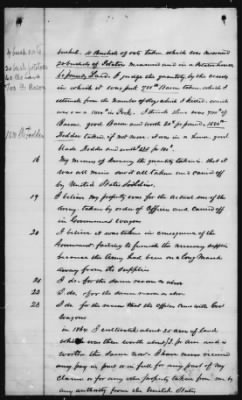 4 bush oats
20 bush potatoes
60 lbs Lard
700 lb Bacon
bushel. 4 Bushels of oats taken which was measured
20 bushels of Potatoes measured and in a
60 pounds Lard. I judge the quantity by the vessels
in which it was put 700 lbs Bacon taken, which I
estimate from the number of hogs which I killed, which
was on a in Pork. I think there was 700 lbs of
Bacon good Bacon and worth pr pound. 1500 lbs
Fodder
Fodder taken if not more. I am in a good
blade Fodder and worth pr 100 lbs.
18 My means of knowing the quantity taken is, that it
was all mine and it all taken and carried off
by United States Soldiers.
19 I believe my property was for the actual use of the
Army, taken by order of Officers and Carried off
in Government wagons
20 I believe it was taken in consequence of the
Government failing to furnish the necessary supplies
because the Army had been on a long March
away from the supplies
21 I do. for the same reason as above
22 I do, for the same reason as above
23 I do for the reason that the officers came with Gov
wagons
in 1864 I cultivated about 25 acres of land
which was then worth about pr Acre and is
worth the same now. I have never received
any pay in part or in full for any part of my
Claim or for any other property taken from me by
any authority from the United States